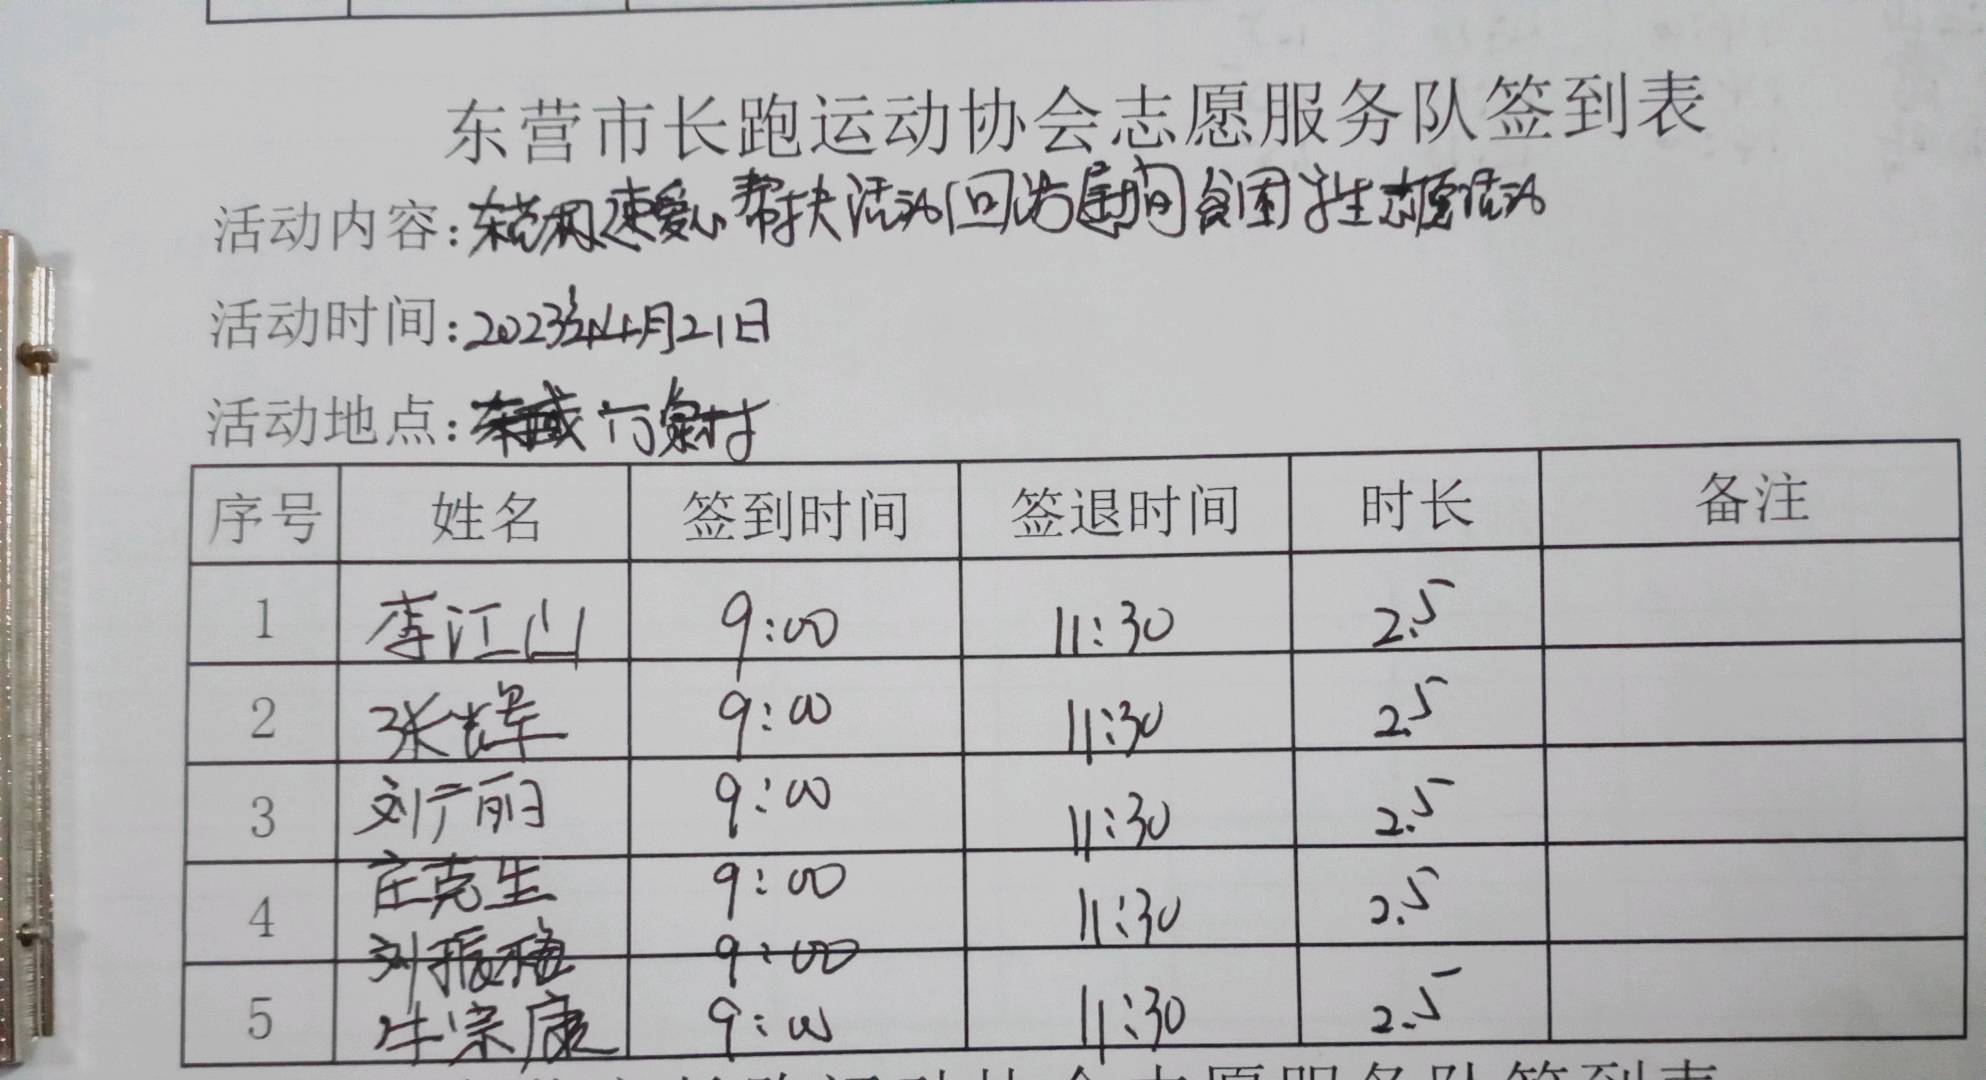 东营市长跑运动协会志愿服务队签到表
活动内容: 爱心帮扶活动(回访慰问贫困学生志愿活动
活动时间: 2023年4月21日
活动地点: 村
序号 姓名 签到时间 签退时间 时长 备注
1 李江山 9:00 11:30 2.5
2 张辉 9:00 11:30 2.5
3 刘广丽 9:00 11:30 2.5
4 庄克生 9:00 11:30 2.5
刘振梅 9:00
5 牛宗康 9:00 11:30 2.5